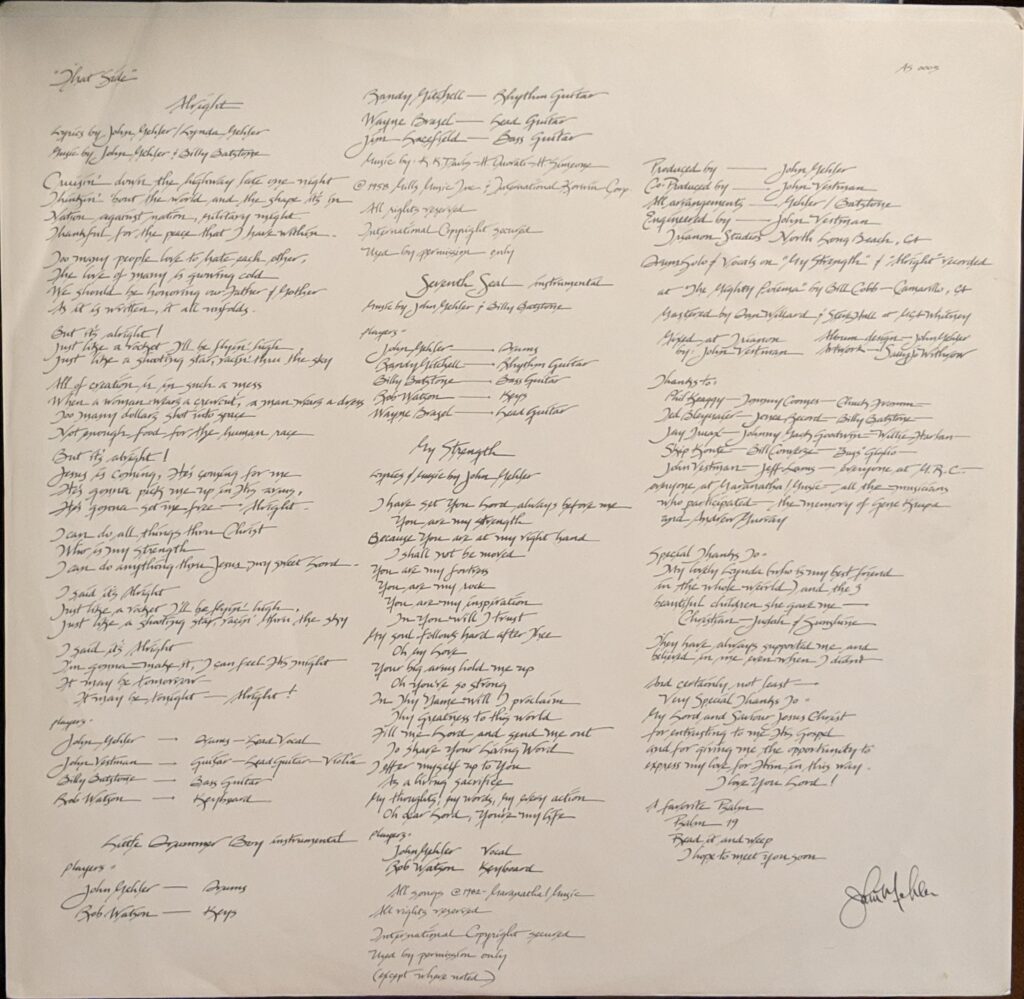 "That Side"
AS 0003
Alright
Lyrics by John Mehler / Lynda Mehler
Music by John Mehler & Billy Batstone
Cruisin' down the highway late one night
Thinkin' 'bout the world, and the shape it's in
Nation against nation, military might
Thankful for the peace that I have within.
Too many people love to hate each other,
The love of many is growing cold
We should be honoring our Father & Mother
As it is written, it all unfolds.
But it's alright!
Just like a rocket I'll be flyin' high,
Just like a shooting star, racin' thru the sky
All of creation is in such a mess
When a woman wears a crewcut, a man wears a dress
Too many dollars shot into space
Not enough food for the human race
But it's alright!
Jesus is coming, He's coming for me
He's gonna pick me up in His arms,
He's gonna set me free — Alright.
I can do all things thru Christ
Who is my strength
I can do anything thru Jesus my sweet Lord.
I said it's Alright
Just like a rocket I'll be flyin' high,
Just like a shooting star, racin' thru the sky
I said it's Alright
I'm gonna make it, I can feel His might
It may be tomorrow
It may be tonight — Alright!
players-
John Mehler → Drums – Lead Vocal
John Vestman → Guitar – Lead Guitar – Violin
Billy Batstone → Bass Guitar
Rob Watson → Keyboard
Little Drummer Boy instrumental
players-
John Mehler — Drums
Rob Watson — Keys
Randy Mitchell — Rhythm Guitar
Wayne Brasel — Lead Guitar
Jim Lacefield — Bass Guitar
Music by: K.K. Davis – H. Onorati – H. Simeone
© 1958 Mills Music Inc & International Korwin Corp.
All rights reserved
International Copyright secured
Used by permission only
Seventh Seal instrumental
Music by John Mehler & Billy Batstone
players-
John Mehler → Drums
Randy Mitchell → Rhythm Guitar
Billy Batstone → Bass Guitar
Rob Watson → Keys
Wayne Brasel → Lead Guitar
My Strength
Lyrics & Music by John Mehler
I have set You Lord always before me
You are my strength
Because You are at my right hand
I shall not be moved
You are my fortress
You are my rock
You are my inspiration
In You will I trust
My soul follows hard after Thee
Oh my Love
Your big arms hold me up
Oh You're so strong
In Thy Name will I proclaim
Thy Greatness to this world
Fill me Lord and send me out
To share Your Living Word
I offer myself up to You
As a living sacrifice
My thoughts, my words, my every action
Oh dear Lord, You're my life
players-
John Mehler Vocal
Rob Watson Keyboard
All songs © 1982 – Maranatha! Music
All rights reserved
International Copyright secured
Used by permission only
(except where noted)
Produced by — John Mehler
Co-Produced by — John Vestman
All arrangements — Mehler / Batstone
Engineered by — John Vestman
Trianon Studios North Long Beach, CA
Drum Solo & Vocals on "My Strength" & "Alright" recorded
at "The Mighty Poiema" by Bill Cobb – Camarillo, CA
Mastered by Dan Willard & Steve Hall at MCA Whitney
Mixed at Trianon
by: John Vestman
Album design – John Mehler
Artwork – Sallyjo Withrow
Thanks to:
Phil Keaggy – Tommy Coomes – Chuck Fromm
Ted Bleymaier – Jones Record – Billy Batstone
Jay Truax – Johnny Mack Goodwin – Willie Harlan
Skip Konte – Bill Converse – Buss
John Vestman – Jeff Lams – everyone at M.R.C. –
everyone at Maranatha! Music – all the musicians
who participated – the memory of Gene Krupa
and Andrew Murray
Special Thanks To –
My lovely Lynda (who is my best friend
in the whole world) and the 3
beautiful children she gave me —
Christian – Judah & Sunshine
They have always supported me and
believed in me even when I didn't
And certainly not least —
Very Special Thanks To –
My Lord and Saviour Jesus Christ
for entrusting to me His Gospel
and for giving me the opportunity to
express my love for Him in this way.
I love You Lord!
A favorite Psalm
Psalm 19
Read it and weep
I hope to meet you soon
John Mehler